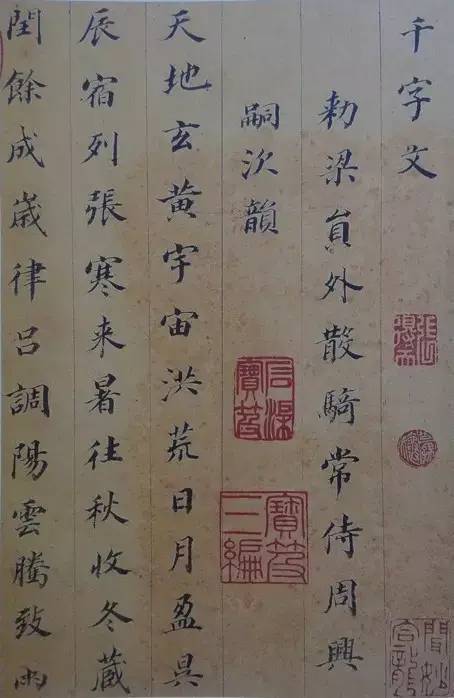 千字文
勑梁貟外散騎常侍周興
嗣次韻
天地玄黃宇宙洪荒日月盈昃
辰宿列張寒来暑往秋收冬藏
閏餘成歲律呂調陽雲騰致雨
石渠寶笈
寶笈三編